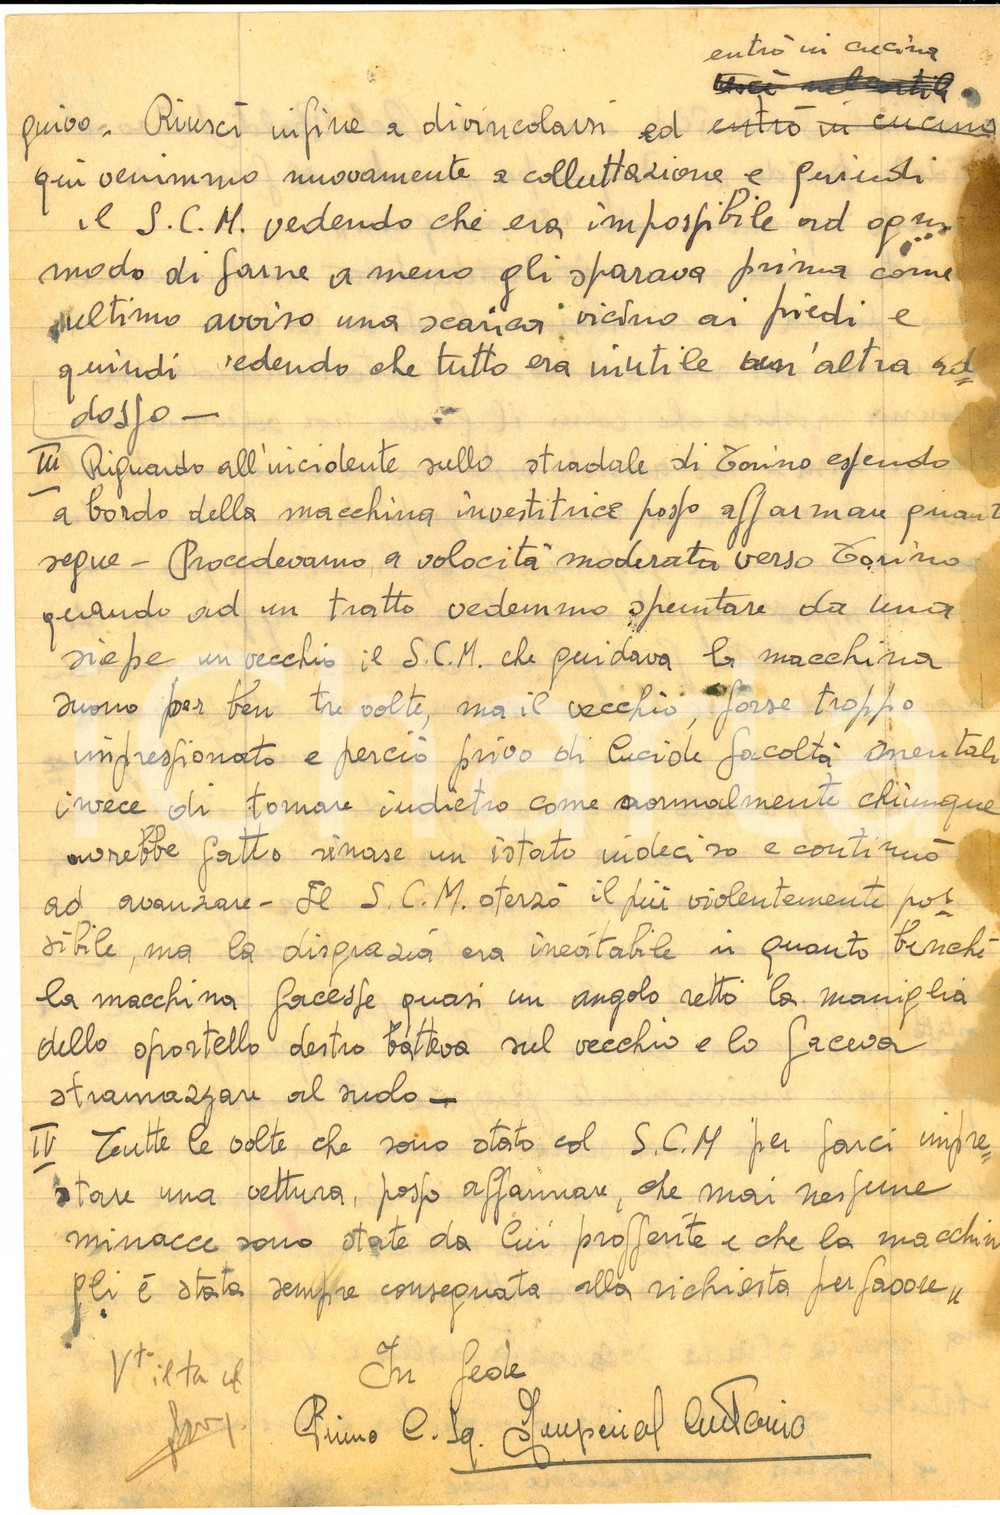 entrò in cucina
guivo. Riuscì infine a divincolarsi ed entrò in cucina
qui venimmo nuovamente a colluttazione e quindi
il S.C.M. vedendo che era impossibile ad ogni
modo di farne a meno gli sparava prima come
ultimo avviso una scarica vicino ai piedi e
quindi vedendo che tutto era inutile un'altra ad=
dosso —
III Riguardo all'incidente sullo stradale di Torino essendo
a bordo della macchina investitrice posso affarmare quant
segue – Procedevamo a volocità moderata verso Torino
quando ad un tratto vedemmo spuntare da una
siepe un vecchio il S.C.M. che guidava la macchina
suono per ben tre volte, ma il vecchio, forse troppo
impressionato e perciò privo di lucide facoltà mentali
invece di tornare indietro come normalmente chiunque
avrebbe fatto rimase un istato indeciso e continuò
ad avanzare – Il S.C.M. sterzò il più violentemente pos=
sibile, ma la disgrazia era inevitabile in quanto benchè
la macchina facesse quasi un angolo retto la maniglia
dello sportello destro batteva sul vecchio e lo faceva
stramazzare al suolo —
IV Tutte le volte che sono stato col S.C.M per farci impre=
stare una vettura, posso affarmare, che mai nessune
minacce sono state da lui profferite e che la macchin
gli è stata sempre consegnata alla richiesta per favore "
In fede
Vto il
Primo C. Sq. Imperial Antonio